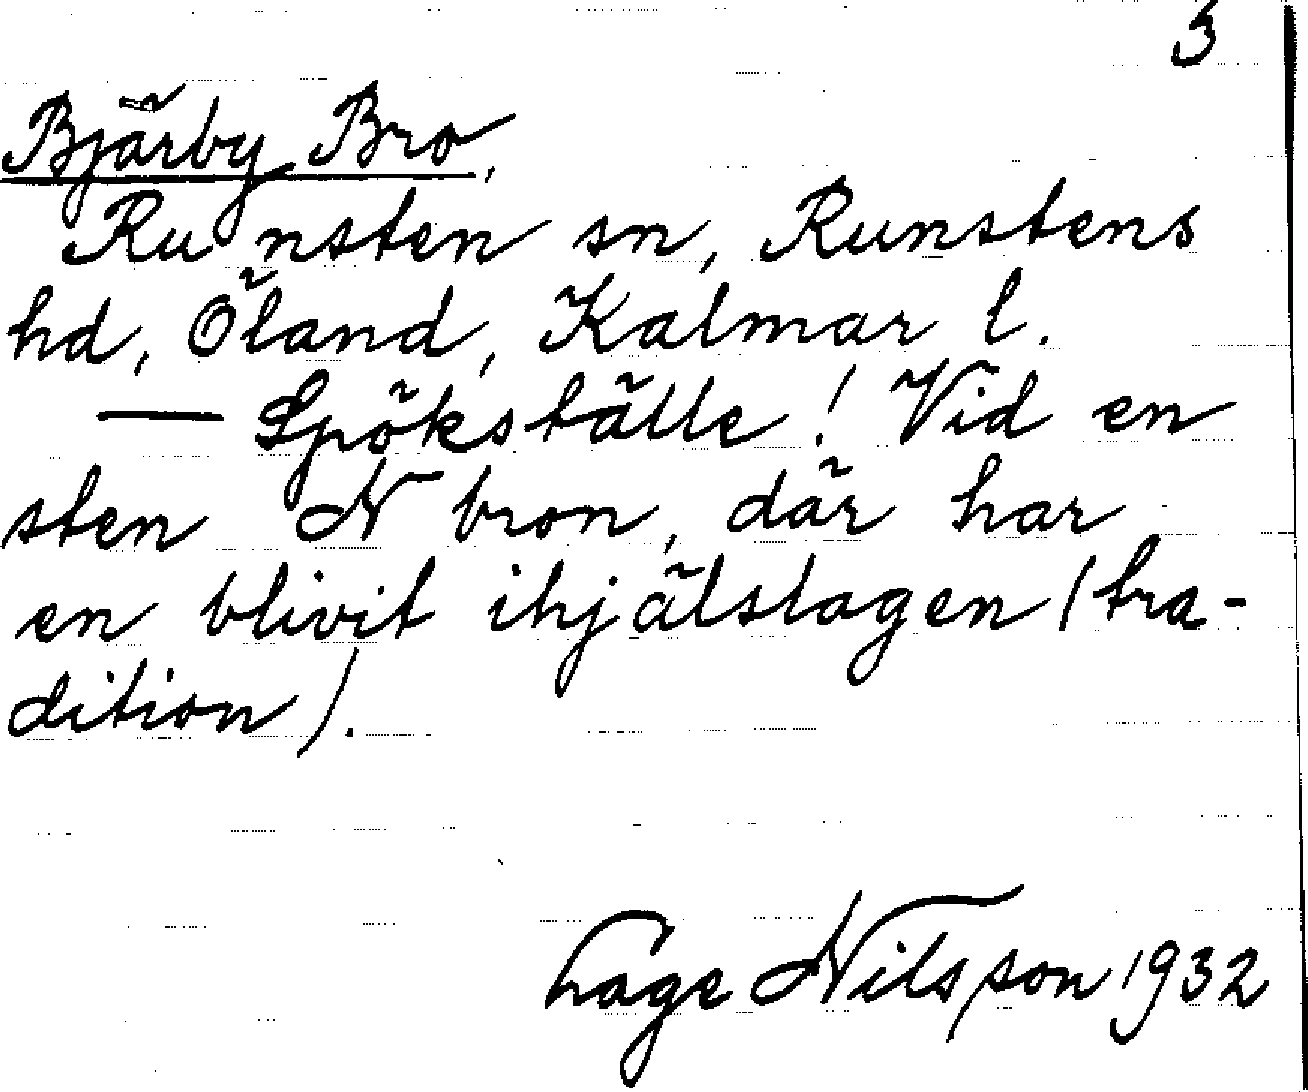 3
Bjärby Bro,
Runsten sn, Runstens
hd, Öland, Kalmar l.
— Spökställe! Vid en
sten N bron, där har
en blivit ihjälslagen (tra-
dition).
Hage Nilsson 1932